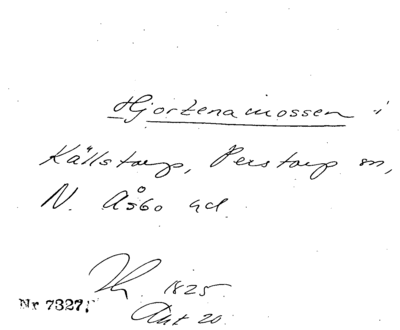 Hjortenamossen i
Källstorp, Perstorp sn,
N. Åsbo hd.
1825
Akt 20
Nr 7327.